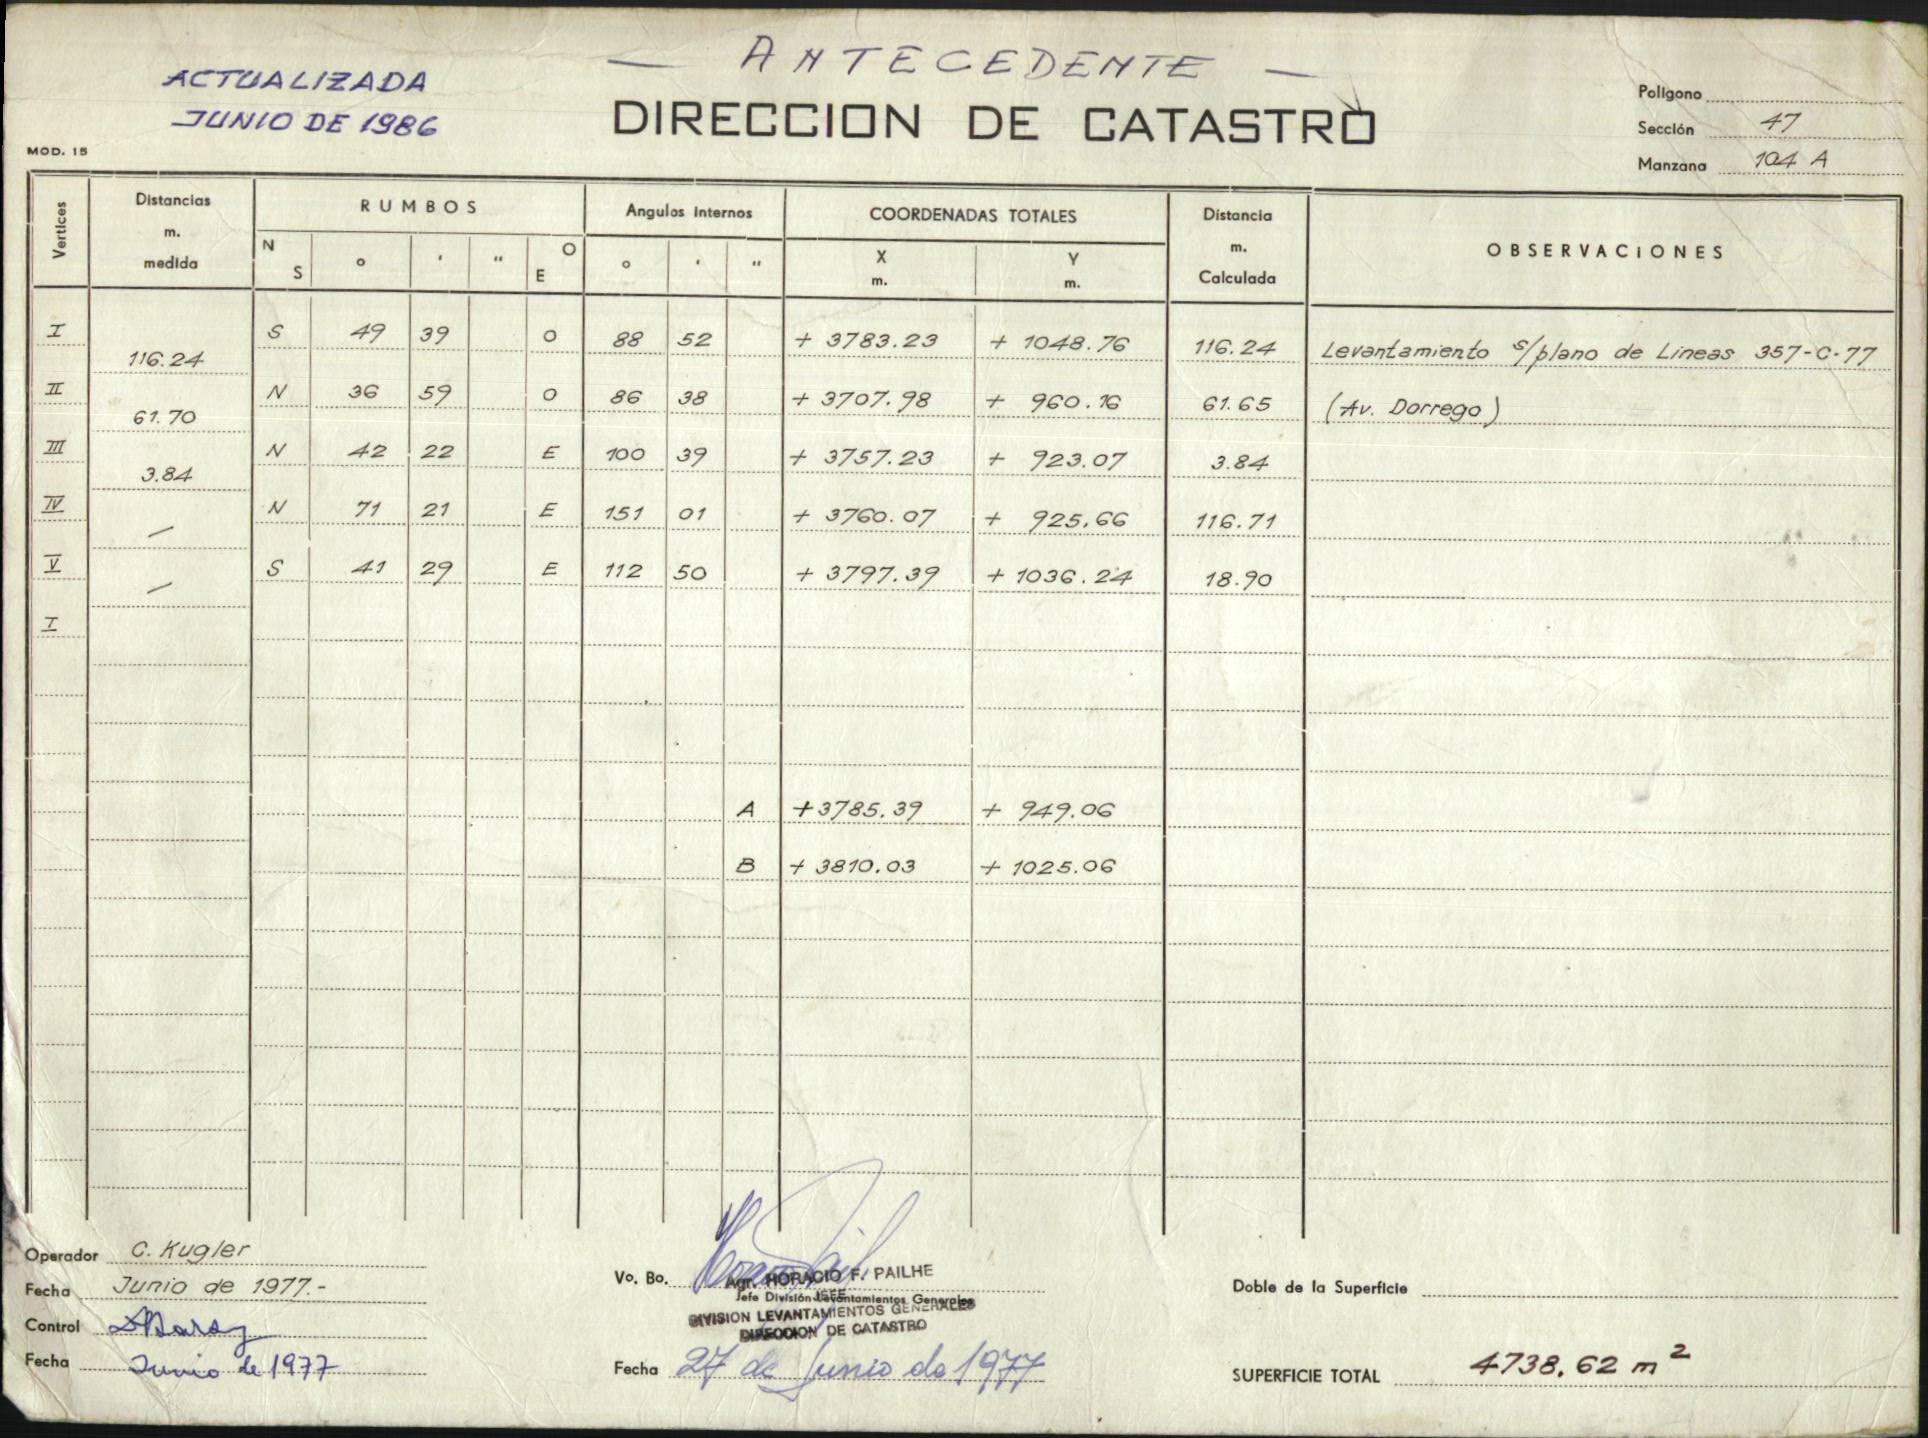 — ANTECEDENTE —
ACTUALIZADA
JUNIO DE 1986
DIRECCION DE CATASTRO
Polígono
Sección 47
Manzana 104 A
MOD. 15
Vertices Distancias m. medida RUMBOS N S ° ' " O E Angulos Internos ° ' " COORDENADAS TOTALES X m. Y m. Distancia m. Calculada OBSERVACIONES
I 116.24 S 49 39 O 88 52 + 3783.23 + 1048.76 116.24 Levantamiento s/plano de Lineas 357-C-77
II 61.70 N 36 59 O 86 38 + 3707.98 + 960.16 61.65 (Av. Dorrego)
III 3.84 N 42 22 E 100 39 + 3757.23 + 923.07 3.84
IV — N 71 21 E 151 01 + 3760.07 + 925.66 116.71
V — S 41 29 E 112 50 + 3797.39 + 1036.24 18.90
I
A +3785.39 + 949.06
B + 3810.03 + 1025.06
Operador C. Kugler
Fecha Junio de 1977.-
Control
Fecha Junio de 1977
Vo. Bo.
Agr. HORACIO F. PAILHE
Jefe División Levantamientos Generales
JEFE
DIVISION LEVANTAMIENTOS GENERALES
DIRECCION DE CATASTRO
Fecha 27 de Junio de 1977
Doble de la Superficie
SUPERFICIE TOTAL 4738.62 m²